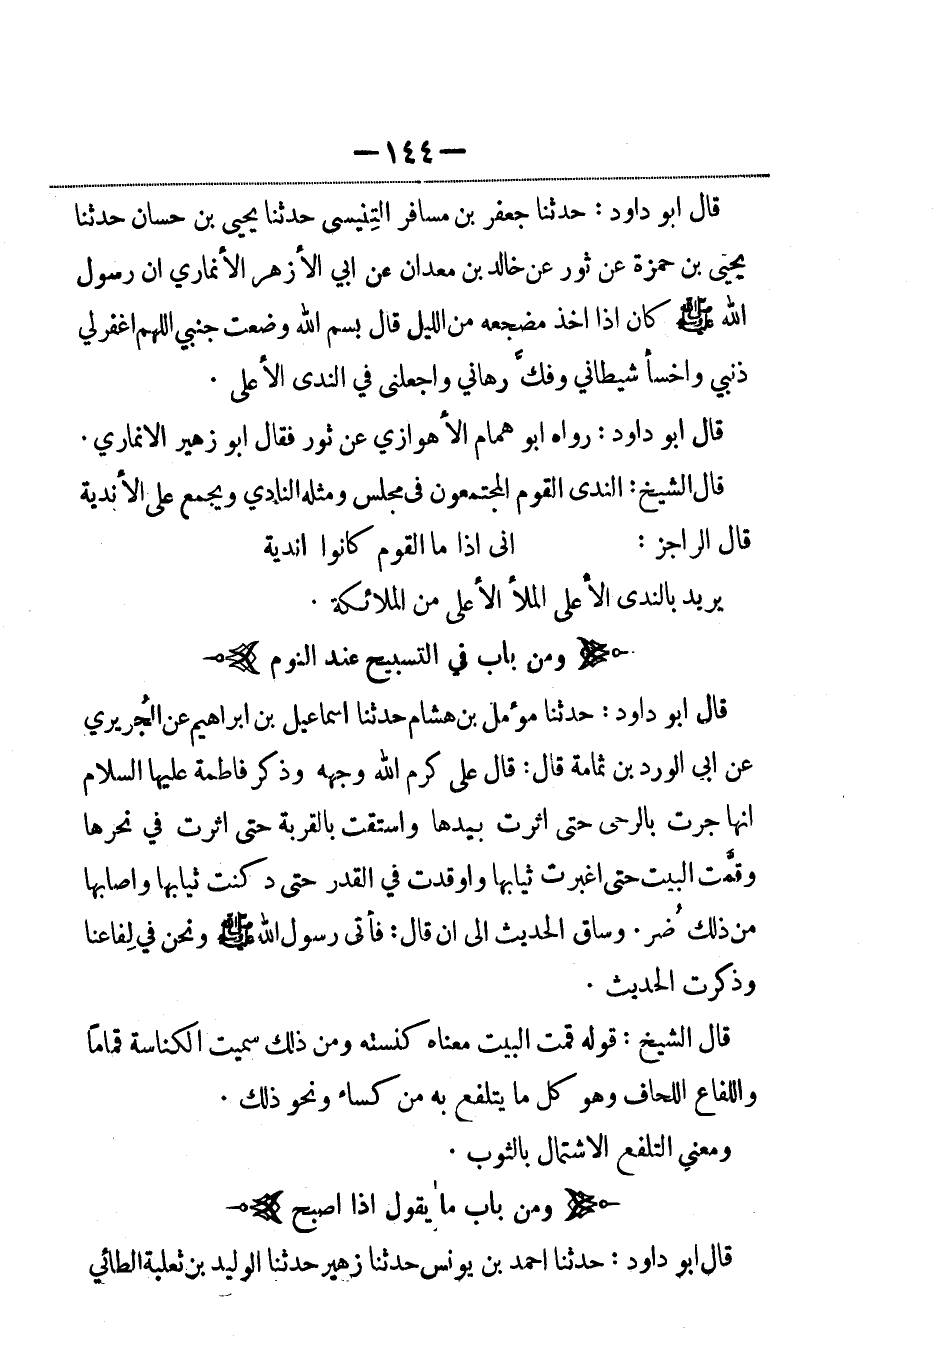 —١٤٤—
قال ابو داود : حدثنا جعفر بن مسافر التِنيسي حدثنا يحيى بن حسان حدثنا
يحيى بن حمزة عن ثور عن خالد بن معدان عن ابي الأزهر الأنماري ان رسول
الله ﷺ كان اذا اخذ مضجعه من الليل قال بسم الله وضعت جنبي اللهم اغفر لي
ذنبي واخسأ شيطاني وفكَّ رهاني واجعلنى في الندى الأعلى .
قال ابو داود : رواه ابو همام الأهوازي عن ثور فقال ابو زهير الانماري .
قال الشيخ : الندى القوم المجتمعون فى مجلس ومثله النادي ويجمع على الأندية
قال الراجز : انى اذا ما القوم كانوا اندية
يريد بالندى الأعلى الملأ الأعلى من الملائكة .
ومن باب في التسبيح عند النوم
قال ابو داود : حدثنا مؤمل بن هشام حدثنا اسماعيل بن ابراهيم عن الجُريري
عن ابي الورد بن ثمامة قال : قال على كرم الله وجهه وذكر فاطمة عليها السلام
انها جرت بالرحى حتى اثرت بيدها واستقت بالقربة حتى اثرت في نحرها
وقمَّت البيت حتى اغبرت ثيابها واوقدت في القدر حتى دكنت ثيابها واصابها
من ذلك ضُر . وساق الحديث الى ان قال : فأتى رسول الله ﷺ ونحن في لِفاعنا
وذكرت الحديث .
قال الشيخ : قوله قمت البيت معناه كنسته ومن ذلك سميت الكناسة قماماً
واللفاع اللحاف وهو كل ما يتلفع به من كساء ونحو ذلك .
ومعنى التلفع الاشتمال بالثوب .
ومن باب ما يقول اذا اصبح
قال ابو داود : حدثنا احمد بن يونس حدثنا زهير حدثنا الوليد بن ثعلبة الطائي